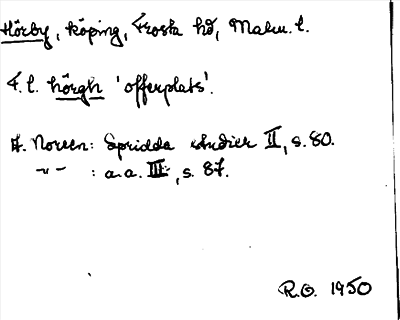 Hörby, köping, Frosta hd, Malm. l.
F. l. hörgh 'offerplats'.
A. Noreen: Spridda studier II, s. 80.
-"- : a.a. III, s. 87.
R.O. 1950